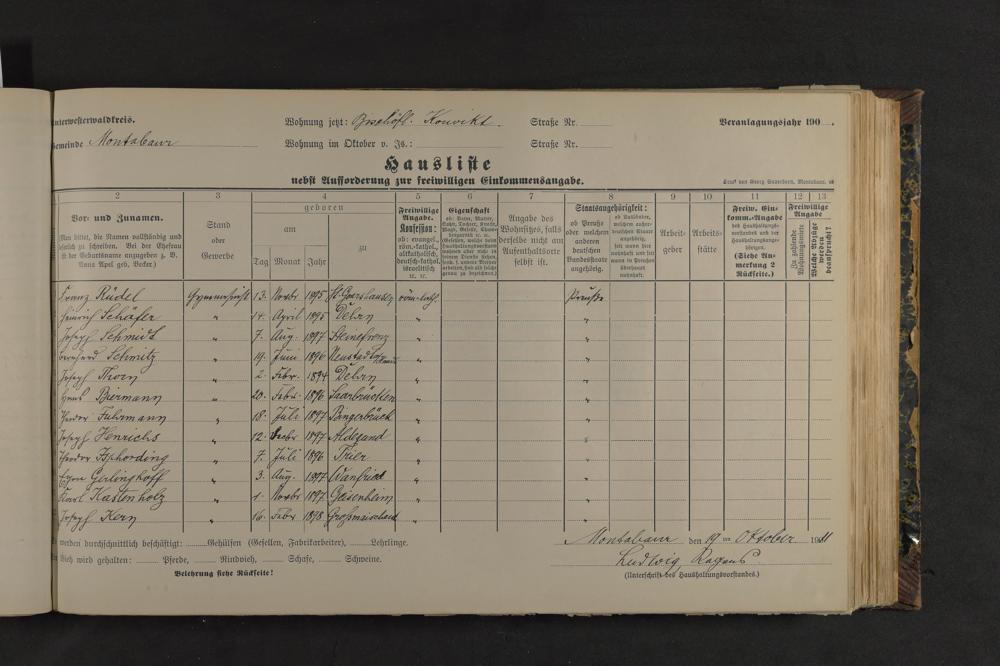 Unterwesterwaldkreis.
Wohnung jetzt: Bischöfl. Konvikt. Straße Nr.
Veranlagungsjahr 190
Gemeinde Montabaur
Wohnung im Oktober v. Js.: Straße Nr.
Hausliste
nebst Aufforderung zur freiwilligen Einkommensangabe.
Druck von Georg Sauerborn, Montabaur.
2 3 4 5 6 7 8 9 10 11 12 13
Vor- und Zunamen.
(Man bittet, die Namen vollständig und
deutlich zu schreiben. Bei der Ehefrau
ist der Geburtsname anzugeben z. B.
Anna Apel geb. Becker.)
Stand
oder
Gewerbe
geboren
am
zu
Tag Monat Jahr
Freiwillige
Angabe.
Konfession:
ob: evangel.,
röm.-kathol.,
altkatholisch,
deutsch-kathol.
israelitisch
rc. rc.
Eigenschaft
Angabe des
Wohnsitzes, falls
derselbe nicht am
Aufenthaltsorte
selbst ist.
Staatsangehörigkeit:
ob Preuße
oder welchem
anderen
deutschen
Bundesstaate
angehörig.
Arbeit-
geber
Arbeits-
stätte
Freiw. Ein-
komm.-Angabe
des Haushaltungs-
vorstandes und der
Haushaltungsange-
hörigen.
(Siehe An-
merkung 2
Rückseite.)
Freiwillige
Angabe
Zu zahlende
Wohnungsmiete
Welche Abzüge
werden
beansprucht?
Franz Rüdel Gymnasiast 13. Novbr 1895 St. Goarshausen röm.-kath. Preuße
Heinrich Schäfer " 14. April 1895 Dehrn " "
Joseph Schmidt " 7. Aug. 1897 Steinefrenz " "
Bernhard Schmitz " 19. Juni 1896 Neustadt " "
Joseph Thorn " 2. Febr. 1894 Dehrn " "
Hans Biermann " 20. Febr. 1896 Saarbrücken " "
Theodor Fuhrmann " 18. Juli 1897 Bingerbrück " "
Joseph Henrichs " 12. Decbr 1897 Aldegund " "
Theodor Isphording " 7. Juli 1896 Trier " "
Egon Gerlinghoff " 3. Aug. 1897 Wanfried " "
Karl Kastenholz " 1. Novbr 1897 Geisenheim " "
Joseph Kern " 16. Febr 1898 Großmaischeid " "
Es werden durchschnittlich beschäftigt: Gehülfen (Gesellen, Fabrikarbeiter), Lehrlinge.
Montabaur den 19 ten Oktober 1911
An Vieh wird gehalten: Pferde, Rindvieh, Schafe, Schweine.
Ludwig
Belehrung siehe Rückseite!
(Unterschrift des Haushaltungsvorstandes.)